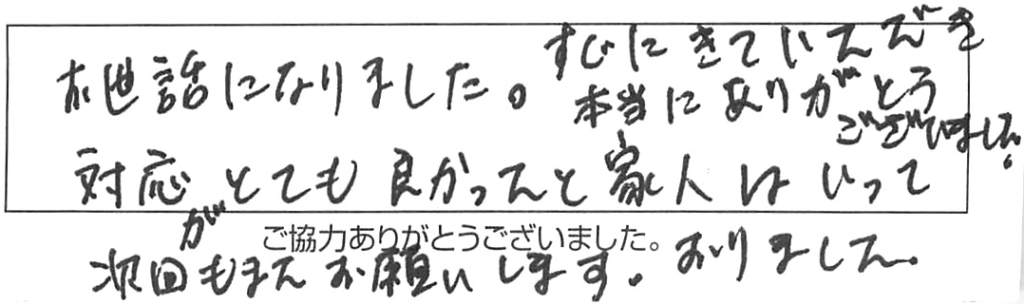 お世話になりました。
すぐにきていただき
本当にありがとう
ございました。
対応がとても良かったと家人はいって
おりました。
ご協力ありがとうございました。
次回もまたお願いします。